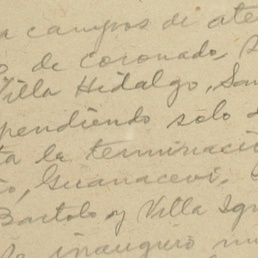 a campos de ate
o de coronado, S
Villa Hidalgo, San
pendiendo solo d
ta la terminació
o, Guanaceví,
Bartolo y Villa Ign
inauguró